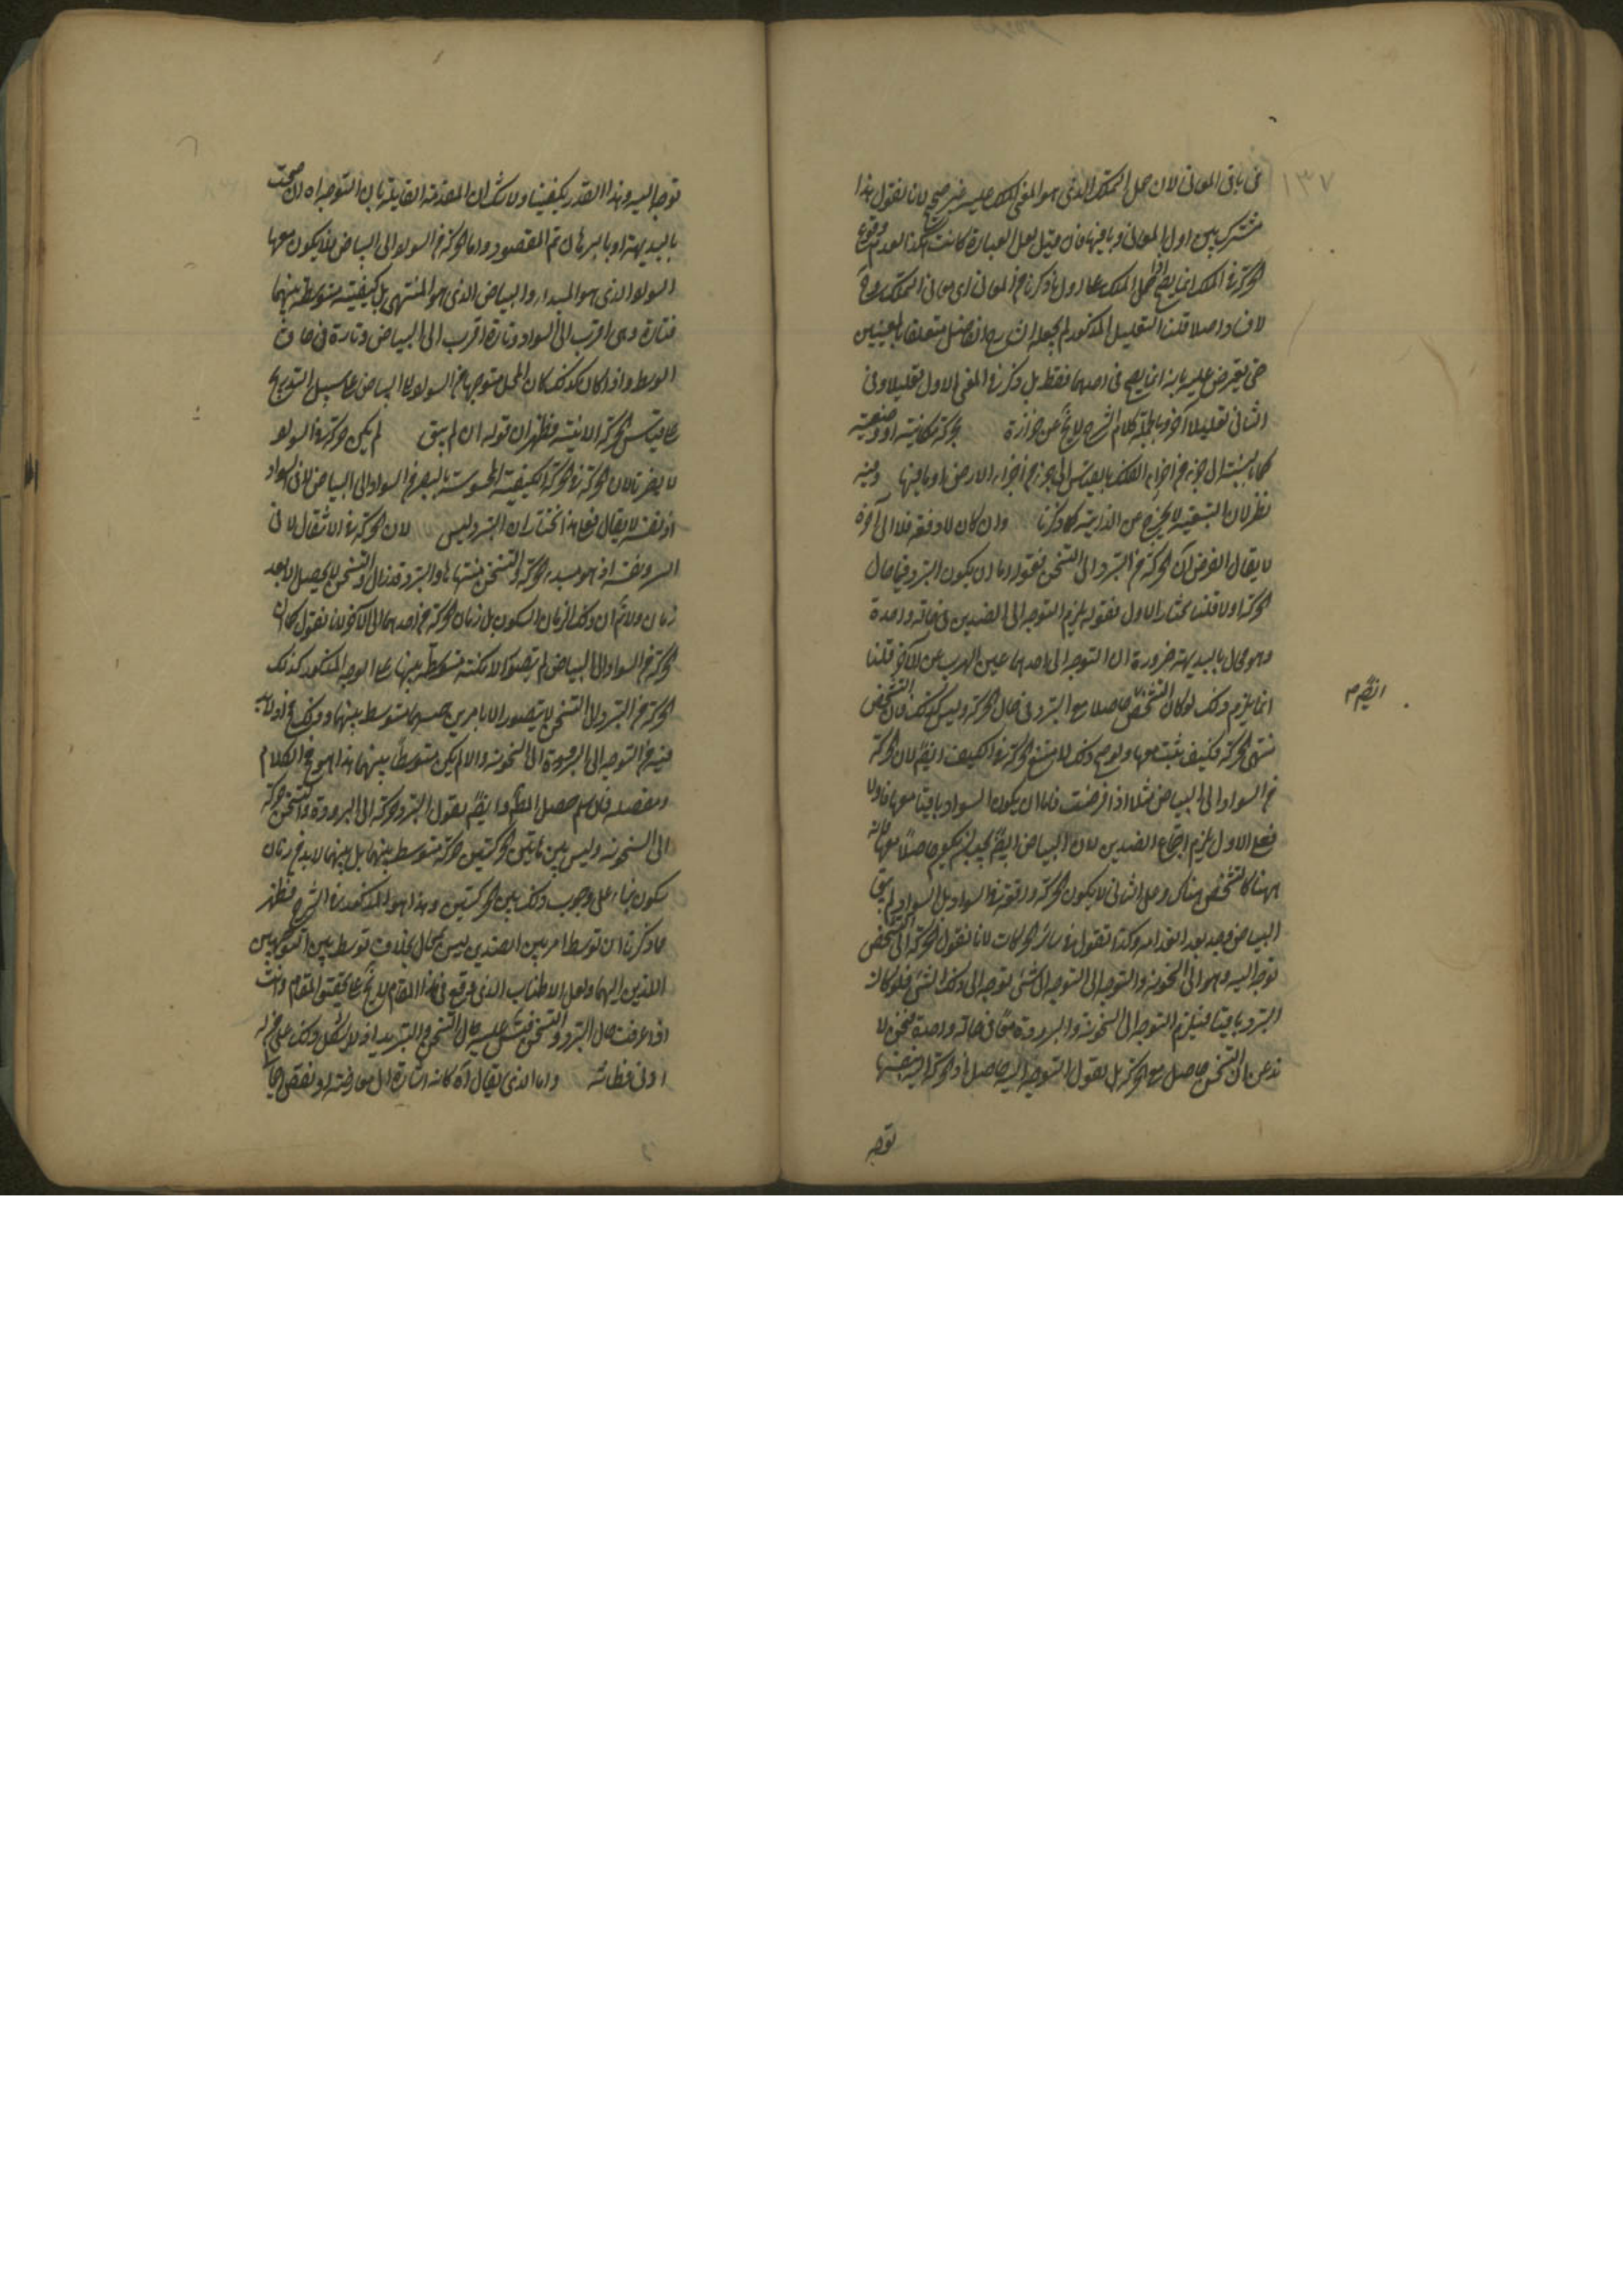 ١٣٧
فى باقى المعانى لان حمل التملك الذى هو المعنى الملك عليه غير صحيح لانا نقول هذا
مشترك بين اول المعانى وباقيها فان قيل لعل العبارة كانت هكذا لعدم وقوع
الحركة فى الملك انما يصح اذا حمل الملك على اول ما ذكرنا من المعانى اى معانى التملك
لا فاد اصلا قلنا التعليل المذكور لم يجعله الشارح الفاضل متعلقا بالمعنيين
حتى يعترض عليه بانه انما يصح فى احدهما فقط بل ذكر فى المعنى الاول تعليلا وفى
الثانى تعليلا آخر وبالجملة كلام الشرح لا يخ عن حزازة بحركة مكانية او وضعية
كما بنسبته الى جزء من اجزاء الفلك بالقياس الى جزء من اجزاء الارض او ما فيها وفيه
نظر لان التبعية لا يخرج عن الذاتية كما ذكرنا وان كان لا دفعة فلا الى آخره
لا يقال الفرض ان الحركة من التبرد الى التسخن فنقول اما ان يكون التبرد فى حال
الحركة اولا قلنا نختار الاول فقوله يلزم التوجه الى الضدين فى حالة واحدة
وهو محال بالبديهة ضرورة ان التوجه الى احدهما عين الهرب عن الآخر قلنا
انما يلزم ذلك لو كان التسخن حاصلا مع التبرد فى حال الحركة وليس كذلك فان التسخن
منتهى الحركة فكيف يثبت معها ولو صح ذلك لامتنع الحركة فى الكيف ايضا لان الحركة
من السواد الى البياض مثلا اذا فرضت فاما ان يكون السواد باقيا معها اولا
فعلى الاول يلزم اجتماع الضدين لان البياض ايضا يجب ان يكون حاصلا معها لانه
ههنا كالتسخن هناك وعلى الثانى لا يكون الحركة واقعة فى السواد بل السواد لم يبق
البياض وجد بعد انعدامه وكذا نقول فى سائر الحركات لانا نقول الحركة الى التسخن
توجه اليه وهو الى السخونة والتوجه الى التوجه الى شئ توجه الى ذلك الشئ فلو كان
التبرد باقيا فيلزم التوجه الى السخونة والبرودة معا فى حالة واحدة فنحن لا
ندعى ان التسخن حاصل مع الحركة بل نقول التوجه اليه حاصل فى الحركة
توجه
ايضا م
توجه اليه وهذا القدر يكفينا ولا شك ان المقدمة القايلة بان التوجه اه ان صحت
بالبديهة او بالبرهان تم المقصود واما الحركة من السواد الى البياض فلا يكون معها
السواد الذى هو المبدا والبياض الذى هو المنتهى بل كيفية متوسطة بينهما
فتارة هى اقرب الى السواد وتارة اقرب الى البياض وتارة فى حاق
الوسط واذا كان كذلك كان المحل متوجها من السواد الى البياض على سبيل التدريج
على قياس الحركة الاينية فظهر ان قوله ان لم يبق لم يكن حركة فى السواد
لا يضرنا لان الحركة فى الكيفية المحسوسة بالبصر من السواد الى البياض لا فى السواد
او نفسه لا يقال فعلى هذا نختار ان التبرد ليس لان الحركة فى الانتقال لا فى
التبرد نفسه اذ هو مبدء الحركة والتسخن منتهاها والتبرد قد زال والتسخن لم يحصل الا بعد
زمان ولا ثم ان ذلك الزمان زمان السكون بل زمان الحركة من احدهما الى الآخر لانا نقول كما ان
الحركة من السواد الى البياض لم يتصور الا بكيفية متوسطة بينهما على الوجه المذكور كذلك
الحركة من التبرد الى التسخن لا يتصور الا بامر من جنسهما متوسط بينهما وذلك مح اذ لا بد
فيه من التوجه الى البرودة الى السخونة والا لم يكن متوسطا بينهما هذا هو مخ الكلام
ومفصله فان سلم حصل المط وايضا نقول التبرد حركة الى البرودة والتسخن حركة
الى السخونة وليس بين هاتين الحركتين حركة متوسطة بينهما بل بينهما لا بد من زمان
سكون بناء على وجوب ذلك بين الحركتين وهذا هو المذكور فى الشرح فظهر
مما ذكرنا ان توسط امر بين الضدين ليس بمحال بخلاف توسط بين التوجهين
اللذين اليهما ولعل الاطناب الذى وقع فى هذا المقام لا يخ عن تحقيق المقام وانت
اذا عرفت حال التبرد والتسخن فقس عليه حال التسخين والتبريد اذ لا يشكل ذلك على من له
ادنى فطانة واما الذى يقال اه كانه اشارة الى معارضة او نقض اجمالى